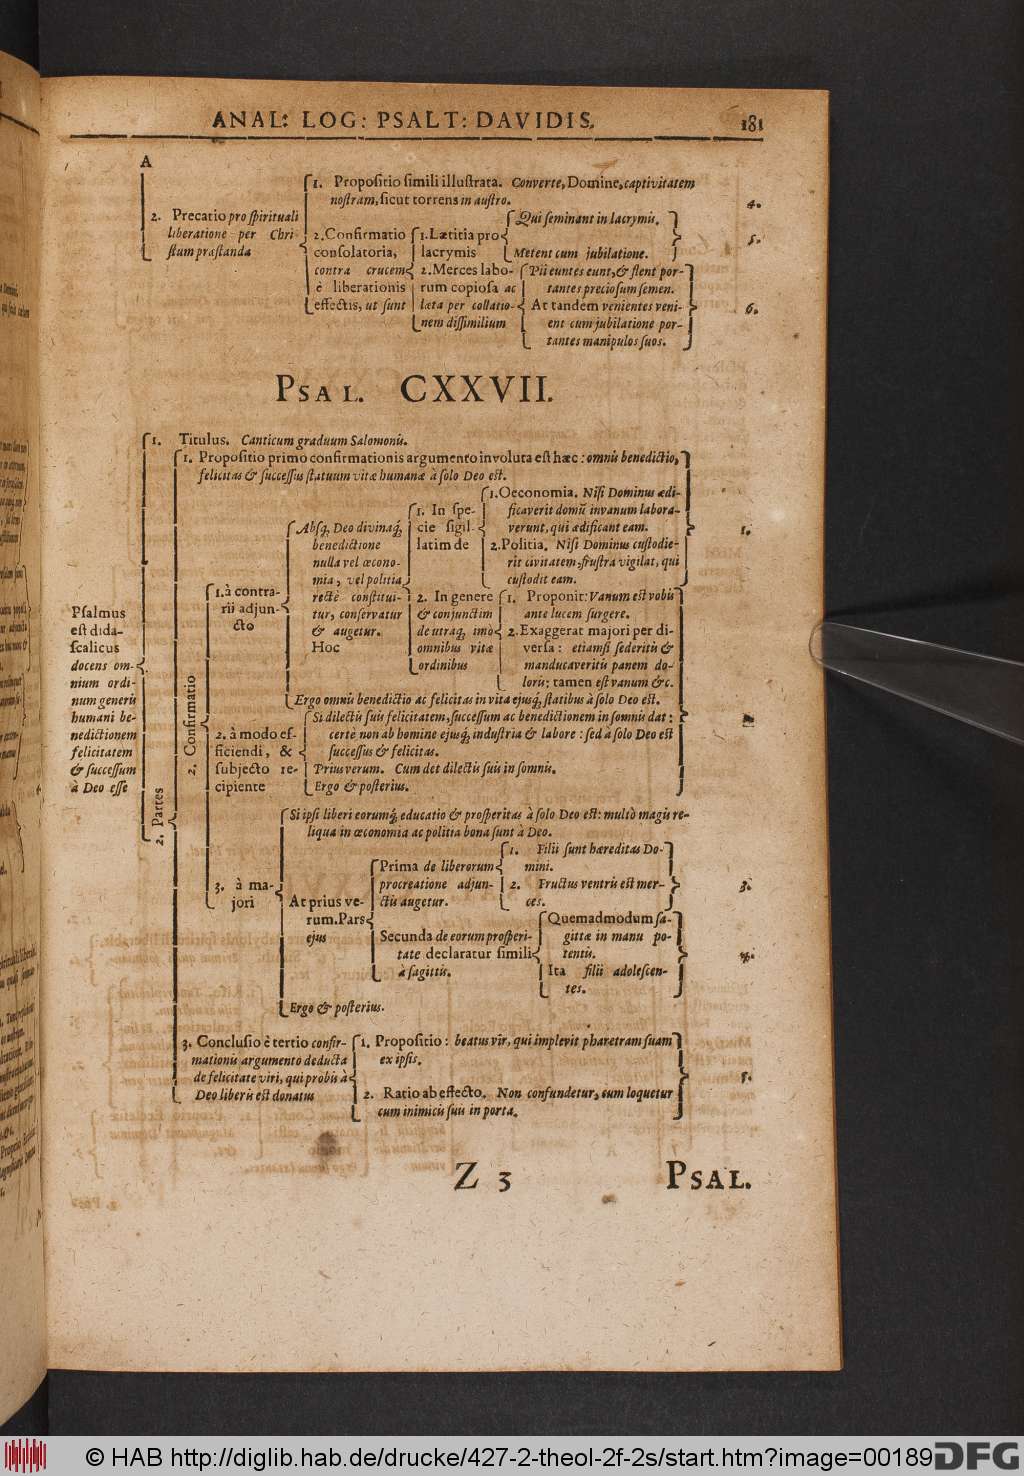 ANAL: LOG: PSALT: DAVIDIS. 181
A
1. Propositio simili illustrata. Converte, Domine, captivitatem
nostram, sicut torrens in austro. 4.
2. Precatio pro spirituali
liberatione per Chri
stum præstanda
2. Confirmatio
consolatoria,
contra crucem
è liberationis
effectis, ut sunt
1. Lætitia pro
lacrymis
Qui seminant in lacrymis.
Metent cum jubilatione. 5.
2. Merces labo-
rum copiosa ac
læta per collatio-
nem dissimilium
Pii euntes eunt, & flent por-
tantes preciosum semen.
At tandem venientes veni-
ent cum jubilatione por-
tantes manipulos suos. 6.
PSAL. CXXVII.
Psalmus
est dida-
scalicus
docens om-
nium ordi-
num generis
humani be-
nedictionem
felicitatem
& successum
à Deo esse
1. Titulus. Canticum graduum Salomonis.
2. Partes
1. Propositio primo confirmationis argumento involuta est hæc: omnis benedictio,
felicitas & successus statuum vitæ humanæ à solo Deo est.
2. Confirmatio
1. à contra-
rii adjun-
cto
Absq; Deo divinaq;
benedictione
nulla vel œcono-
mia, vel politia
rectè constitui-
tur, conservatur
& augetur.
Hoc
1. In spe-
cie sigil-
latim de
1. Oeconomia. Nisi Dominus ædi-
ficaverit domũ in vanum labora-
verunt, qui ædificant eam.
2. Politia. Nisi Dominus custodie-
rit civitatem, frustra vigilat, qui
custodit eam. 1.
2. In genere
& conjunctim
de utraq; imò
omnibus vitæ
ordinibus
1. Proponit: Vanum est vobis
ante lucem surgere.
2. Exaggerat majori per di-
versa: etiamsi sederitis &
manducaveritis panem do-
loris: tamen est vanum &c.
Ergo omnis benedictio ac felicitas in vita ejusq; statibus à solo Deo est.
2. à modo ef-
ficiendi, &
subjecto re-
cipiente
Si dilectis suis felicitatem, successum ac benedictionem in somnis dat:
certè non ab homine ejusq; industria & labore: sed à solo Deo est
successus & felicitas.
Prius verum. Cum det dilectis suis in somnis.
Ergo & posterius.
3. à ma-
jori
Si ipsi liberi eorumq; educatio & prosperitas à solo Deo est: multò magis re-
liqua in œconomia ac politia bona sunt à Deo.
At prius ve-
rum. Pars
ejus
Prima de liberorum
procreatione adjun-
ctis augetur.
1. Filii sunt hæreditas Do-
mini.
2. Fructus ventris est mer-
ces. 3.
Secunda de eorum prosperi-
tate declaratur simili
à sagittis.
Quemadmodum sa-
gittæ in manu po-
tentis.
Ita filii adolescen-
tes. 4.
Ergo & posterius.
3. Conclusio è tertio confir-
mationis argumento deducta
de felicitate viri, qui probis à
Deo liberis est donatus
1. Propositio: beatus vir, qui implevit pharetram suam
ex ipsis.
2. Ratio ab effecto. Non confundetur, cum loquetur
cum inimicis suis in porta. 5.
Z 3 PSAL.
© HAB http://diglib.hab.de/drucke/427-2-theol-2f-2s/start.htm?image=00189
DFG